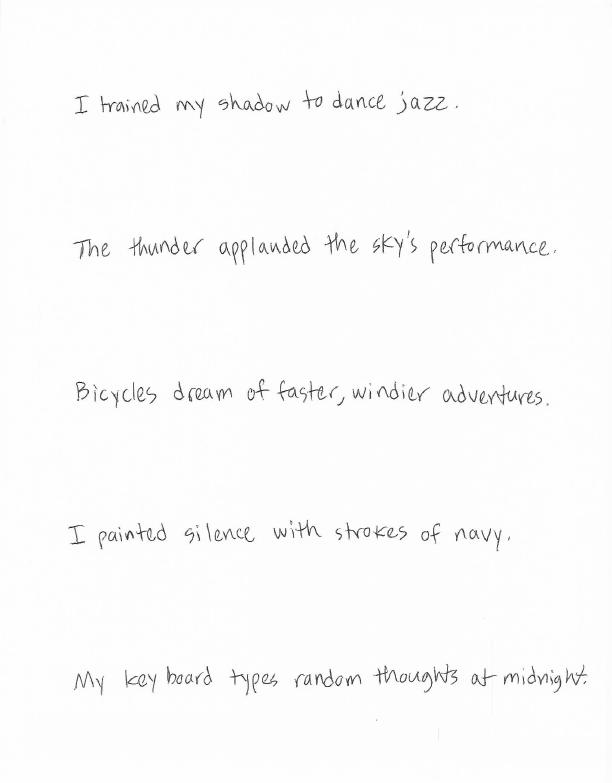 I trained my shadow to dance jazz.
The thunder applauded the sky's performance.
Bicycles dream of faster, windier adventures.
I painted silence with strokes of navy.
My keyboard types random thoughts at midnight.